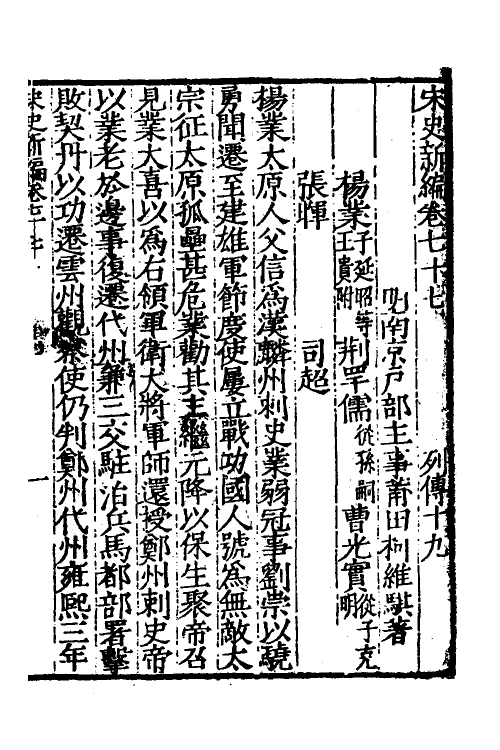 宋史新編卷七十七　列傳十九
明南京戶部主事莆田柯維騏著
楊業子延昭等王貴附　荆罕儒從孫嗣　曹光實從子克明
張暉　司超
楊業太原人父信為漢麟州刺史業弱冠事劉崇以驍
勇聞遷至建雄軍節度使屢立戰功國人號為無敵太
宗征太原孤壘甚危業勸其主繼元降以保生聚帝召
見業大喜以為右領軍衛大將軍師還授鄭州刺史帝
以業老於邊事復遷代州兼三交駐泊兵馬都部署擊
敗契丹以功遷雲州觀察使仍判鄭州代州雍熙三年
宋史新編卷七十七　一